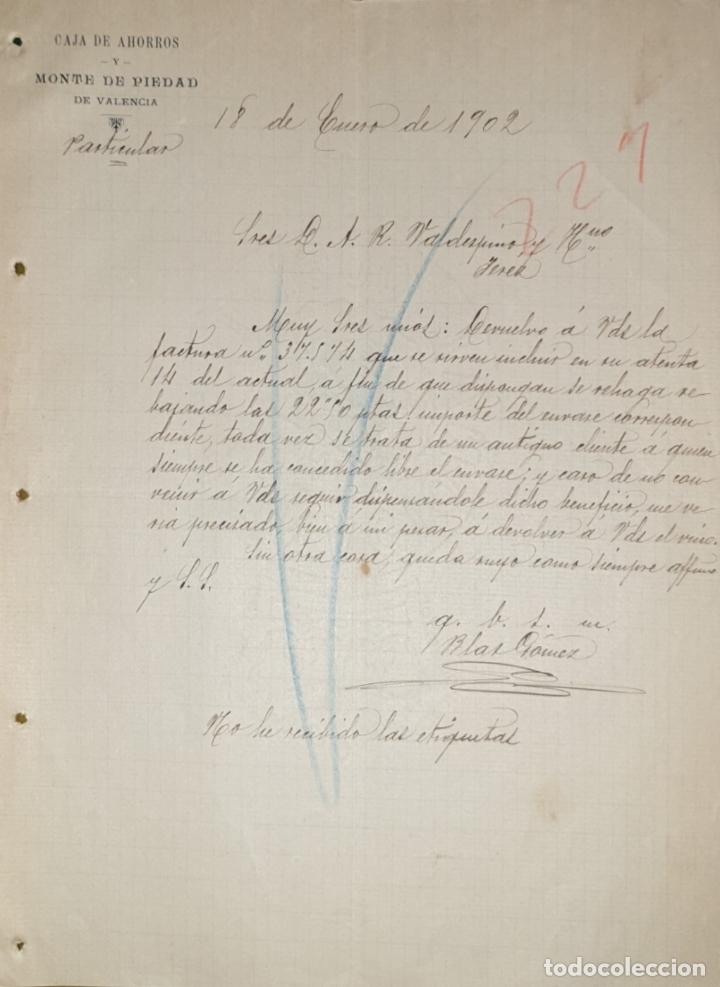 CAJA DE AHORROS
- Y -
MONTE DE PIEDAD
DE VALENCIA
Particular
18 de Enero de 1902
227
Sres D. A. R. Valdespino, y Hno
Jerez
Muy Sres mios: Devuelvo á Vds la
factura nº 37.574 que se sirven incluir en su atenta
14 del actual, á fin de que dispongan se rehaga re-
bajando las 22'50 ptas importe del envase correspon
diente, toda vez se trata de un antiguo cliente á quien
siempre se ha concedido libre el envase; y caso de no con
venir á Vds seguir dispensándole dicho beneficio, me ve
ria precisado, bien á mi pesar, á devolver á Vds el vino.
Sin otra cosa, queda suyo como siempre affmo
y S.S.
q. b. s. m.
Blas Gómez
No he recibido las etiquetas
todocoleccion